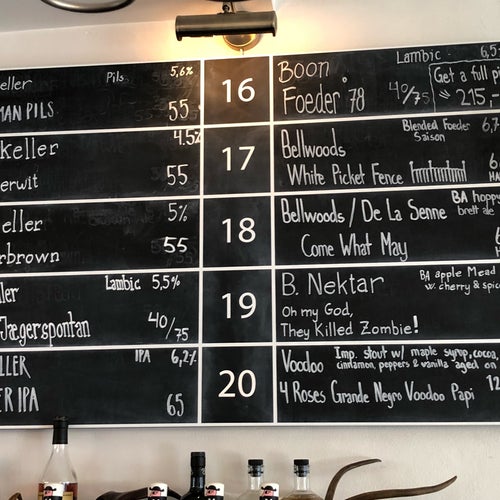 eller Pils 5,6%
MAN PILS 55
16
BOON Lambic 6,5
Foeder °78 40/75 Get a full pi
215,-
keller 4.5%
erwit 55
17
Bellwoods Blended Foeder 6,7
Saison
White Picket Fence 6
HA
eller 5%
rbrown 55
18
Bellwoods / De La Senne BA hoppy
brett ale
Come What May 6
H
ller Lambic 5,5%
Jægerspontan 40/75
19
B. Nektar BA apple Mead
w. cherry & spice
Oh my God,
They Killed Zombie!
LLER IPA 6,2%
ER IPA 65
20
Voodoo Imp. stout w/ maple syrup, cocoa,
cinnamon, peppers & vanilla aged on
4 Roses Grande Negro Voodoo Papi 12